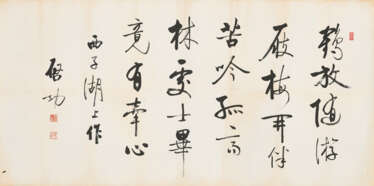 鶴放随游
屐梅开伴
苦吟孤高
林處士畢
竟有牽心
西子湖上作
啓功